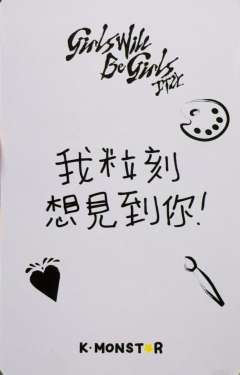 Girls Will
Be Girls
ITZY
我粒刻
想見到你!
K·MONSTAR